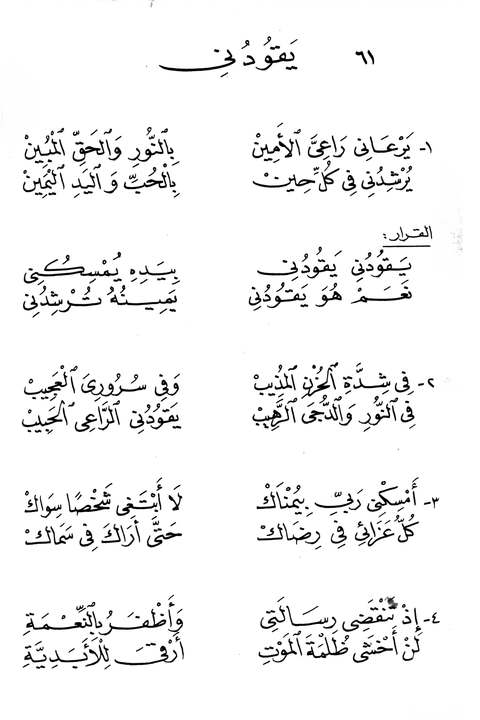 ٦١ يَقُودُنِي
١- يَرْعَانِى رَاعِىَّ ٱلأَمِينْ بِٱلنُّورِ وَٱلحَقِّ ٱلْمُبِينْ
يُرْشِدُنِى فِى كُلِّ حِينْ بِالْحُبِّ وَالْيَدِ الْيَمِينْ
القرار:
يَقُودُنِي يَقُودُنِى بِيَدِهِ يُمْسِكُنِى
نَعَمْ هُوَ يَقُودُنِي يَمِينُهُ تُرْشِدُنِى
٢- فِى شِدَّةِ ٱلحُزْنِ ٱلمُذِيبْ وَفِى سُرُورِىَ ٱلْعَجِيبْ
فِى ٱلنُّورِ وَٱلدُّجَى ٱلرَّهِيبْ يَقُودُنِي ٱلرَّاعِى ٱلحَبِيبْ
٣- أَمْسِكْنِى رَبِّي بِيُمْنَاكْ لَا أَبْتَغِى شَخْصًا سِوَاكْ
كُلُّ عَزَائِي فِي رِضَاكْ حَتَّى أَرَاكَ فِى سَمَاكْ
٤- إِذْ تَنْقَضِى رِسَالَتِي وَأَظْفَرُ بِٱلنِّعْمَةِ
لَنْ أَخْشَى ظُلْمَةَ ٱلمَوْتِ أَرْقَى لِلْأَبَدِيَّةِ